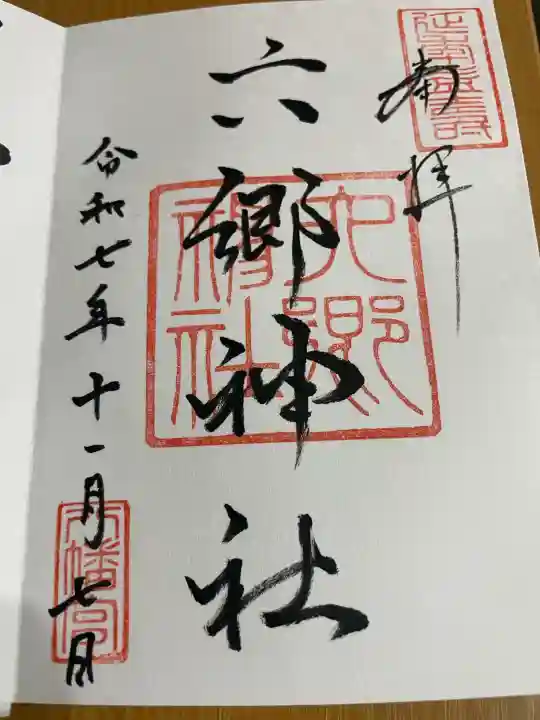 奉拝
六郷神社
令和七年十一月七日
六郷神社
八幡宮